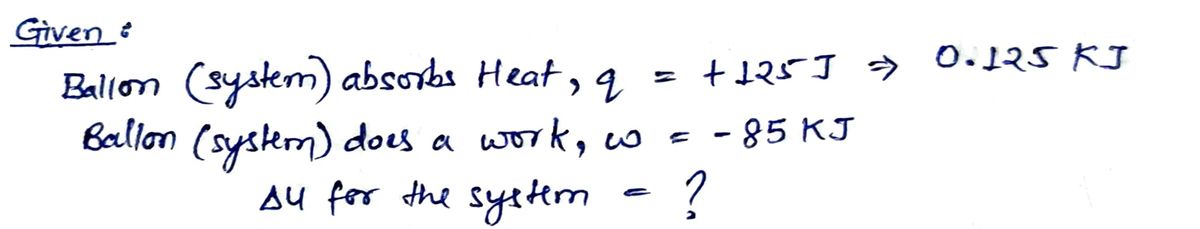 Given :
Ballon (system) absorbs Heat, q = + 125 J ⇒ 0.125 KJ
Ballon (system) does a work, w = - 85 KJ
ΔU for the system = ?